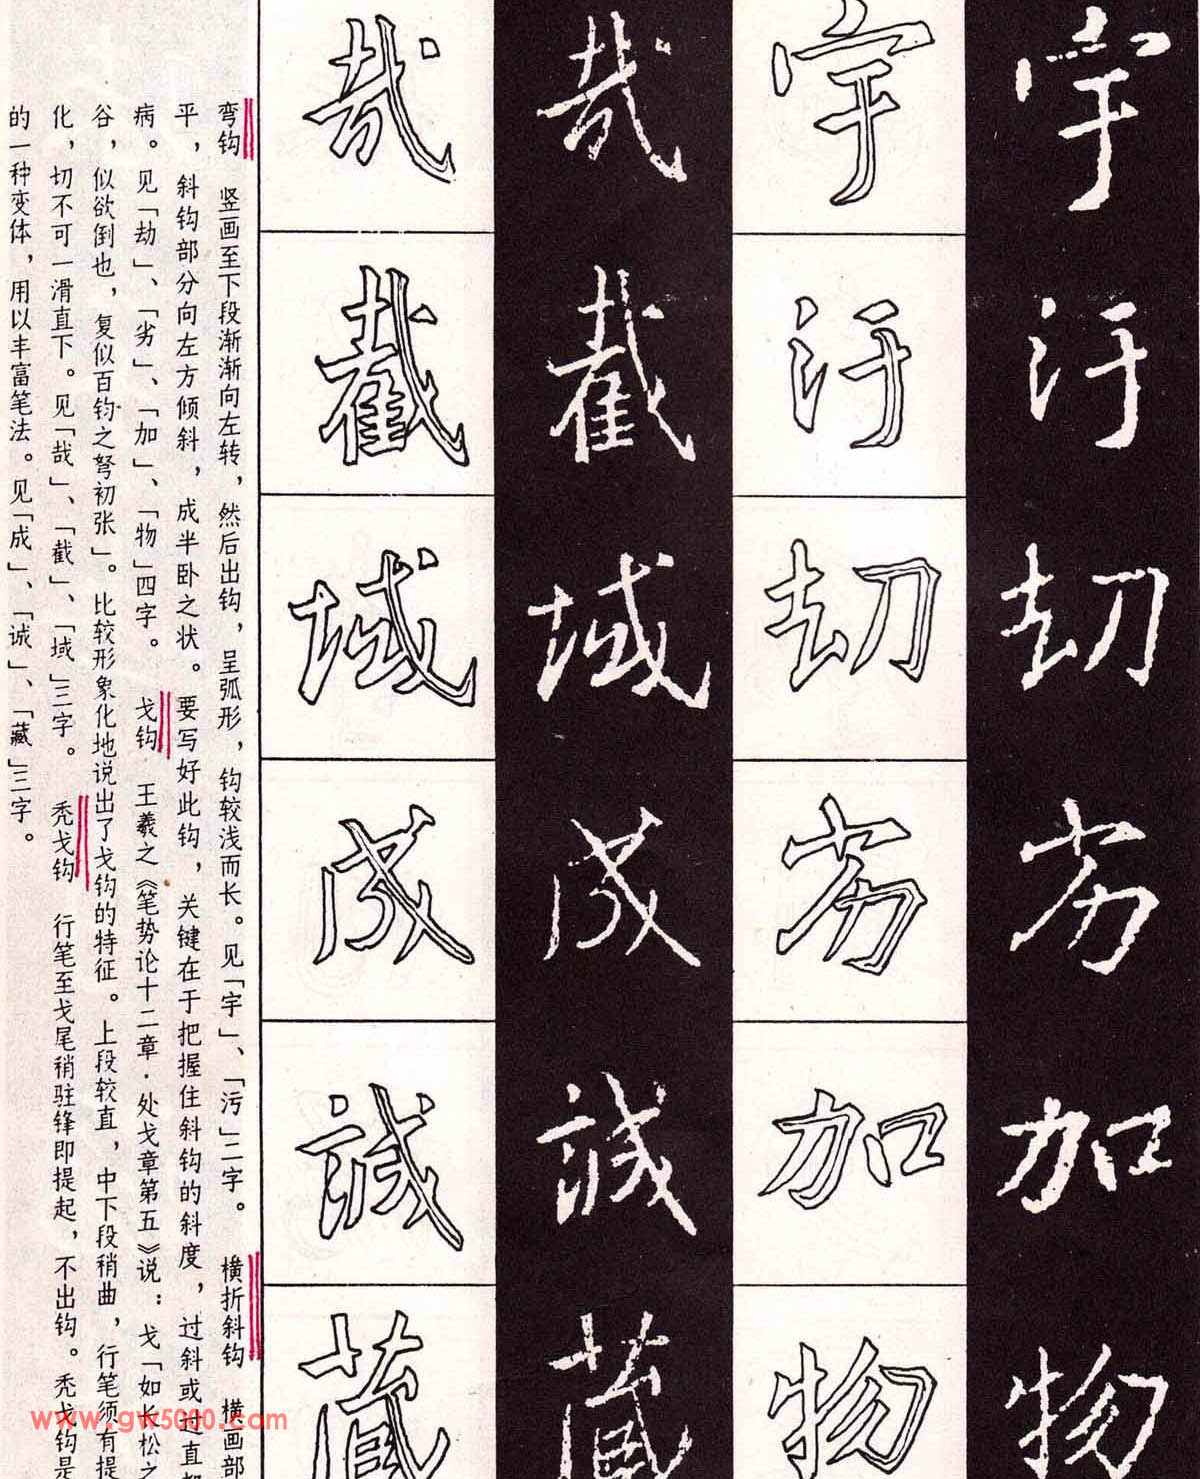 宇
汙
劫
劣
加
物
宇
汙
劫
劣
加
物
哉
截
域
成
誠
藏
哉
截
域
成
誠
藏
弯钩　竖画至下段渐渐向左转，然后出钩，呈弧形，钩较浅而长。见「宇」、「污」二字。　横折斜钩　横画部
平，斜钩部分向左方倾斜，成半卧之状。要写好此钩，关键在于把握住斜钩的斜度，过斜或过直都
病。见「劫」、「劣」、「加」、「物」四字。　戈钩　王羲之《笔势论十二章·处戈章第五》说：戈「如长松之
谷，似欲倒也，复似百钧之弩初张」。比较形象化地说出了戈钩的特征。上段较直，中下段稍曲，行笔须有提
化，切不可一滑直下。见「哉」、「截」、「域」三字。　秃戈钩　行笔至戈尾稍驻锋即提起，不出钩。秃戈钩是
的一种变体，用以丰富笔法。见「成」、「诚」、「藏」三字。
www.gw5000.com